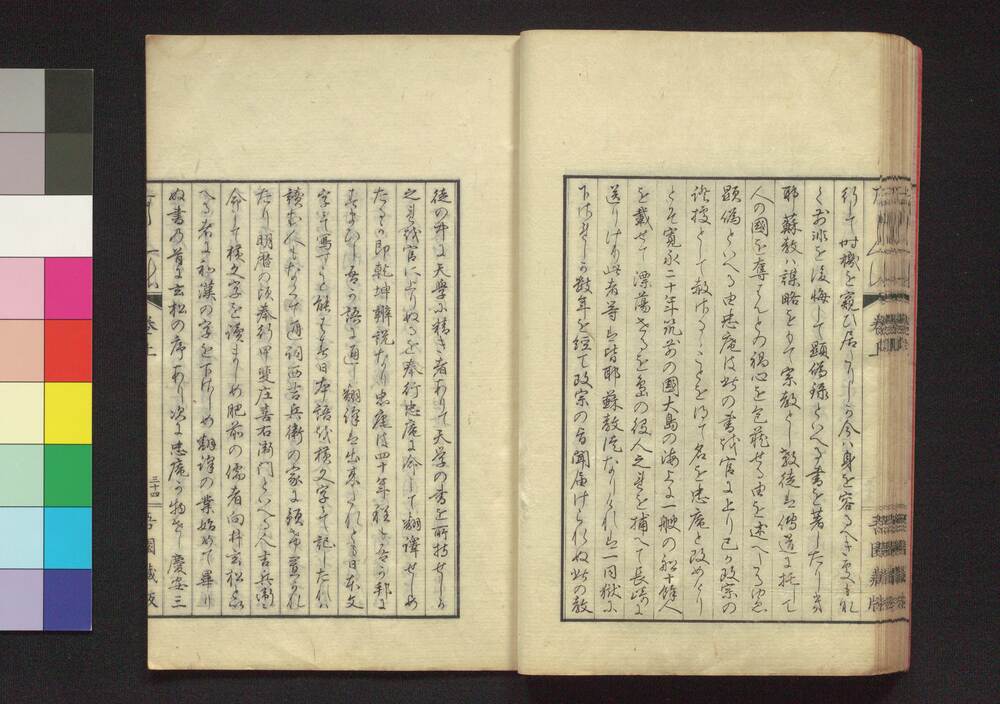 行て時機を窺ひ居たりしか今ハ身を容るへき處なけれ
く前非を後悔して顕偽録といへる書を著したり
耶蘇教ハ謀略をもて宗教とし教徒は傳道に托して
人の國を奪はんとの禍心を包藏せる由を述へしゆゑ
顕偽といへる由忠庵は此の書を官に上り己か改宗の
證據として放はるゝことを得て名を忠庵と改めたり
とそ寛永二十年筑前の國大島の海上に一艘の船十餘人
を載せて漂蕩せるを島の役人之れを捕へて長崎に
送りけり此者等は皆耶蘇教徒なりけれは一同獄に
下されしか数年を經て改宗の旨聞届けられぬ此の教
徒の中に天學に精き者ありて天学の書を所持せしか
之れを官に上りぬるを奉行忠庵に命して翻譯せしめ
たるか即乾坤辨説なり忠庵は四十年程も吾か邦に
吾か語に通し翻譯は出来たれとも日本文
字を寫すこと能はす日本語を横文字もて記したれハ
讀む人もなくて通詞西吉兵衛の家に預け置かれ
たり明暦の頃奉行甲斐庄喜右衛門といへる人吉兵衛に
命して横文字を讀ましめ肥前の儒者向井玄松とい
へる者に和漢の字を下さしめ翻譯の業始めて畢り
ぬ書の首に玄松の序あり次に忠庵か物せし慶安三
卷上
三十四